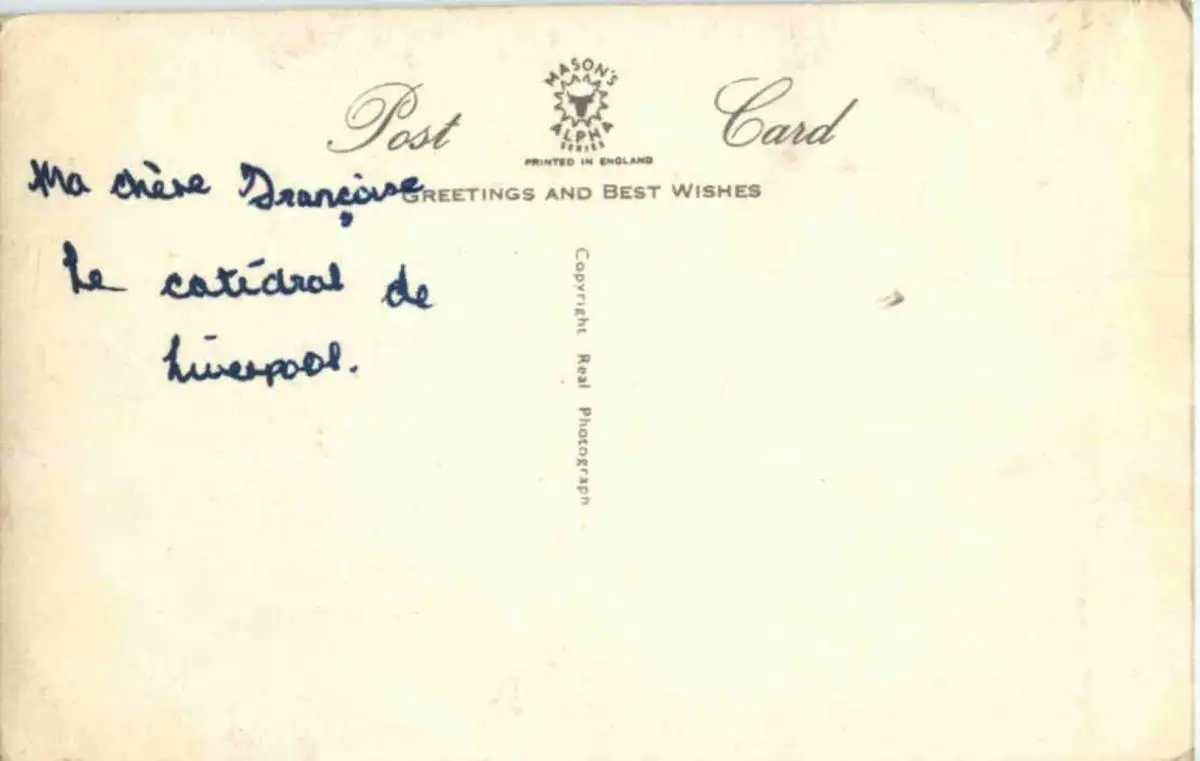 Post Card
MASON'S
ALPHA
SERIES
PRINTED IN ENGLAND
GREETINGS AND BEST WISHES
Ma chère Françoise
Le catédral de
Liverpool.
Copyright Real Photograph